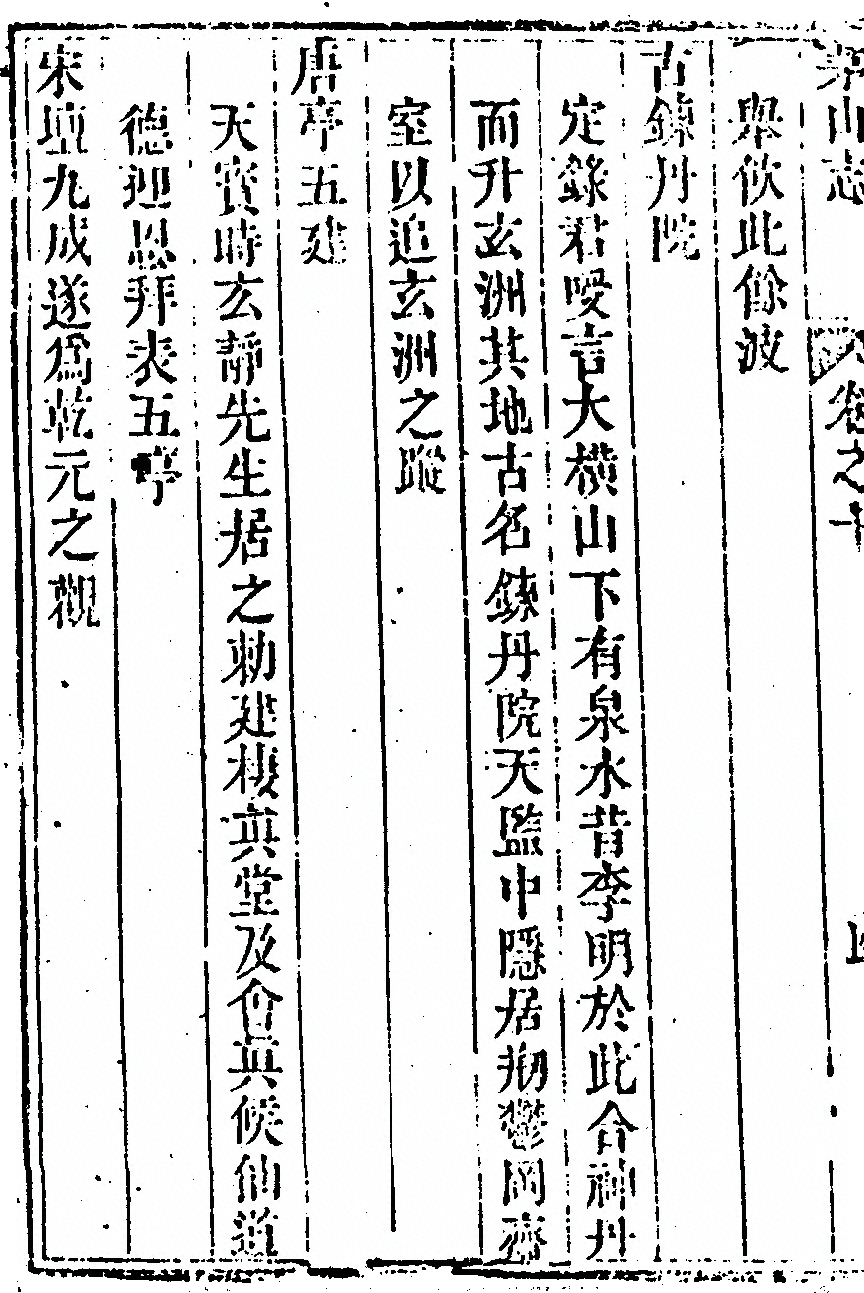 茅山志 卷之十
舉飲此餘波
古鍊丹院
定錄君嘗言大橫山下有泉水昔李明於此合神丹
而升玄洲其地古名鍊丹院天監中隱居刱鬱岡齋
室以追玄洲之蹤
唐亭五建
天寶時玄靜先生居之勑建棲真堂及會真候仙道
德迎恩拜表五亭
宋壇九成遂爲乾元之觀